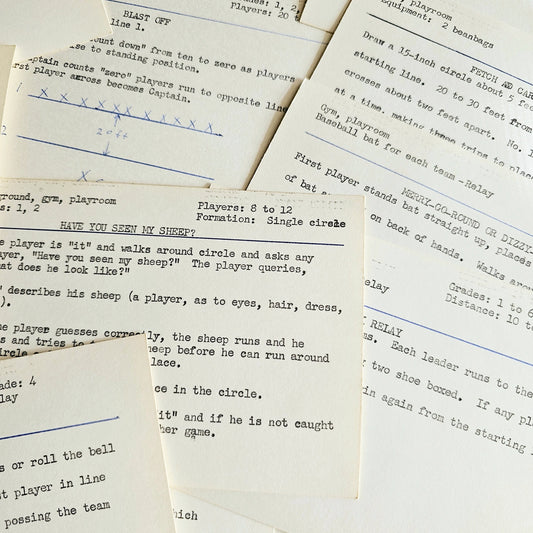 s: 1, 2,
Players: 20
BLAST OFF
line 1.
ount down" from ten to zero as players
se to standing position.
ptain counts "zero" players run to opposite line
rst player across becomes Captain.
X X X X X X X X X X X
20 ft
playroom
Equipment: 2 beanbags
FETCH AND CAR
Draw a 15-inch circle about 5 fee
starting line. 20 to 30 feet from
crosses about two feet apart. No. 1
at a time, making three trips to place
Gym, playroom
Baseball bat for each team -Relay
MERRY-GO-ROUND OR DIZZY
First player stands bat straight up, places
of bat
on back of hands. Walks aroun
elay
Grades: 1 to 6
Distance: 10 to
RELAY
ms. Each leader runs to the
two shoe boxed. If any pl
in again from the starting l
ground, gym, playroom
s: 1, 2
Players: 8 to 12
Formation: Single circle
HAVE YOU SEEN MY SHEEP?
e player is "it" and walks around circle and asks any
yer, "Have you seen my sheep?" The player queries,
at does he look like?"
" describes his sheep (a player, as to eyes, hair, dress,
).
he player guesses correctly, the sheep runs and he
s and tries to
heep before he can run around
ircle
lace.
ce in the circle.
it" and if he is not caught
her game.
ade: 4
lay
s or roll the bell
t player in line
possing the team
hich